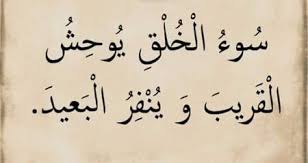 سُوءُ الْخُلْقِ يُوحِشُ
الْقَرِيبَ وَ يُنْفِرُ الْبَعِيدَ.